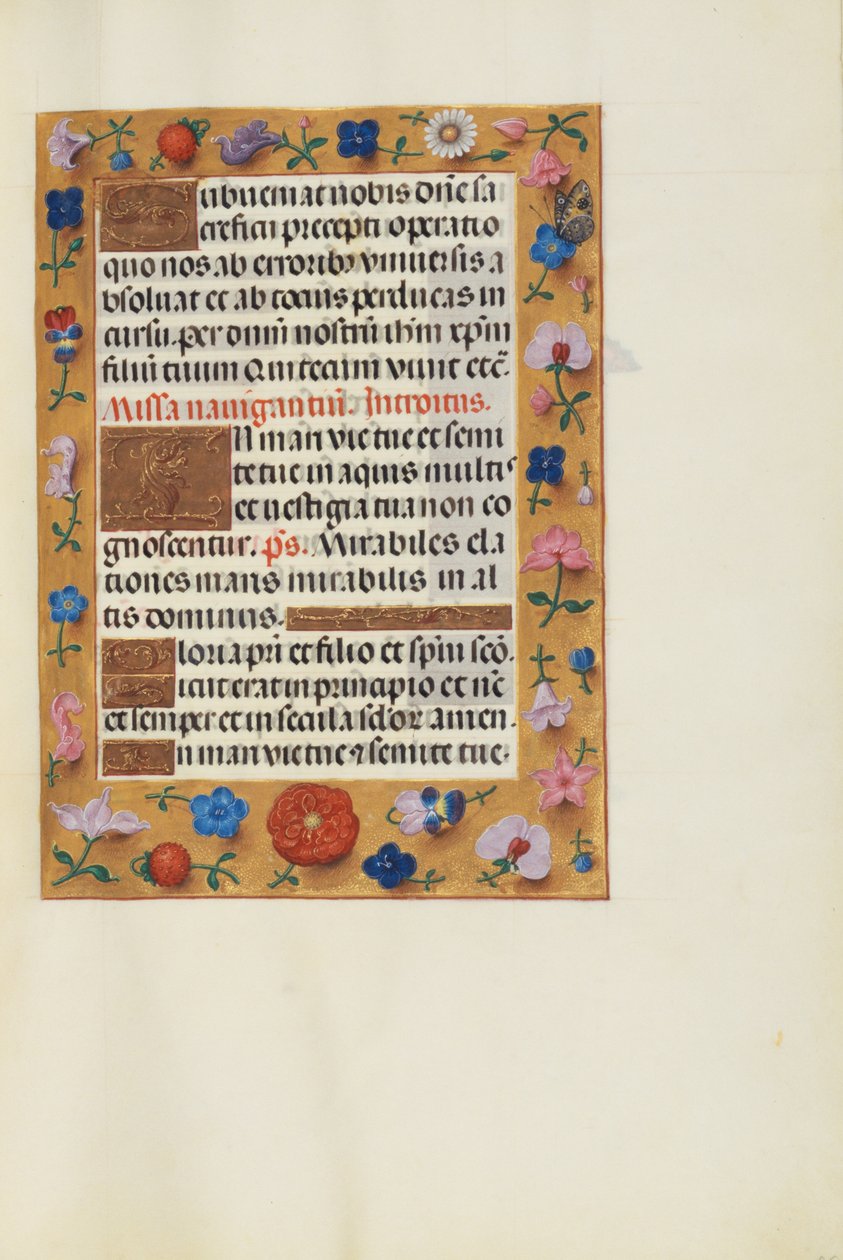 Subueniat nobis dn̄e sa
crificii precepti operatio
quo nos ab erroribꝫ vniuersis a
bsoluat et ab tocius perducas in
cursu. per dnm̄ nostrū ih̄m xp̄m
filiū tuum Qui tecum viuit etc̄.
Missa nauigantiū. Introitus.
In mari vie tue et semi
te tue in aquis multis
et uestigia tua non co
gnoscentur. ps̄. Mirabiles ela
tiones maris mirabilis in al
tis dominus.
Gloria pr̄i et filio et sp̄ui scō.
Sicut erat in principio et nc̄
et semper et in secula sc̄lor̄ amen.
In mari vie tue ⁊ semite tue.